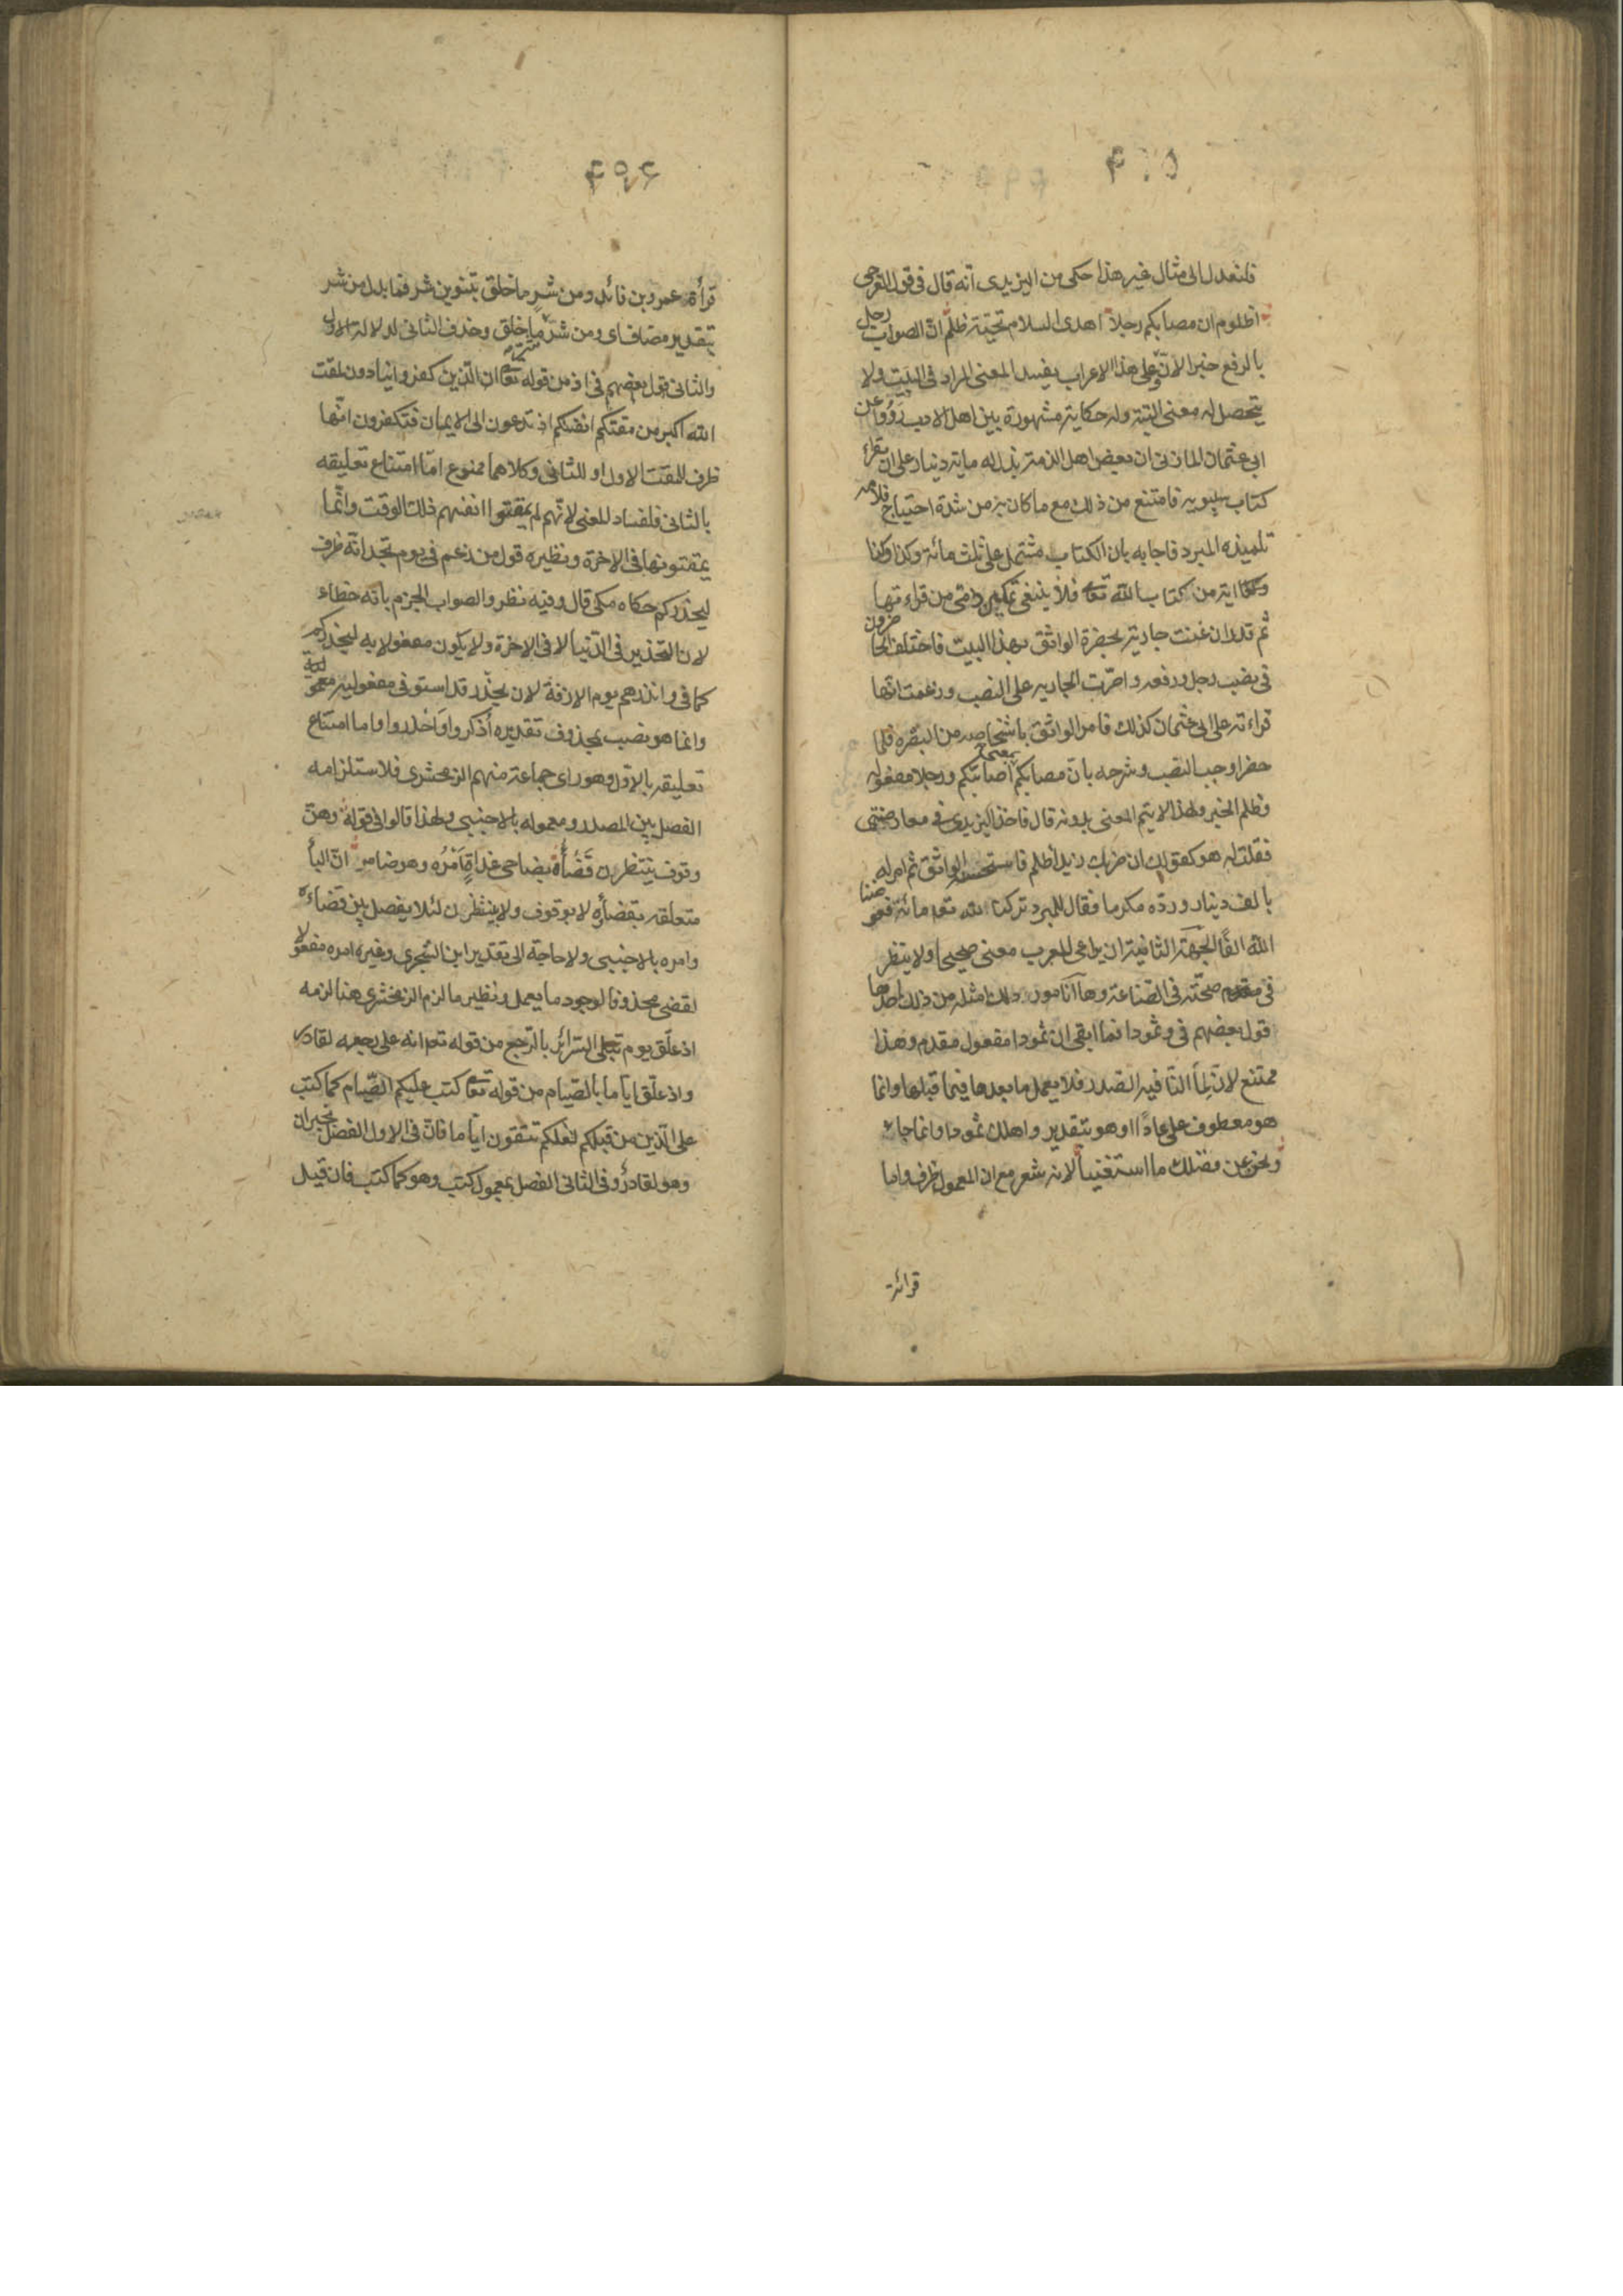 فلنعدل الى مثال غير هذا حكى من اليزيدى انه قال فى قول العرجى
اظلوم ان مصابكم رجلا اهدى السلام تحيّة ظلم انّ الصواب رجل
بالرفع خبرا لانّ وعلى هذا الاعراب يفسد المعنى المراد فى البيت ولا
يتحصل له معنى البتة وله حكاية مشهورة بين اهل الادب رووا عن
ابى عثمان المازنى ان بعض اهل الذمة بذل له ماية دينار على ان يقراء
كتاب سيبويه فامتنع من ذلك مع ما كان به من شدة احتياج فلامه
تلميذه المبرد فاجابه بان الكتاب مشتمل على ثلث مائة وكذا وكذا
اية من كتاب الله تعا فلا ينبغى تمكين ذمّى من قراءتها
ثم قدر ان غنت جارية بحضرة الواثق بهذا البيت فاختلف الحاضرون
فى نصب رجل ورفعه واصرّت الجارية على النصب وزعمت انها
قراءته على ابى عثمان كذلك فامر الواثق باشخاصه من البصره فلما
حضر اوجب النصب وشرحه بان مصابكم بمعنى اصابتكم ورجلا مفعوله
وظلم الخبر ولهذا لا يتم المعنى بدونه قال فاخذ اليزيدى فى معارضتى
فقلت له هو كقولك ان ضربك زيدا ظلم فاستحسنه الواثق ثم امر له
بالف دينار وردّه مكرما فقال للمبرد تركنا لله تعا مائة فعوضنا
الله الفا الجهة الثانية ان يراعى المعرب معنى صحيحا ولا ينظر
فى صحّته فى الصناعة وها انا مورد لك امثله من ذلك احدها
قول بعضهم فى وثمودا فما ابقى ان ثمودا مفعول مقدم وهذا
ممتنع لان لما النافيه الصدر فلا يعمل ما بعدها فيما قبلها وانما
هو معطوف على عادًا او هو بتقدير واهلك ثمودا وانما جاء
ونحن عن فضلك ما استغنينا لانه شعر مع ان المعمول ظرف واما
قرائة
۴۹۶
قرأة عمرو بن فائد ومن شرٍ ما خلق بتنوين شر فما بدل من شر
بتقدير مضاف اى ومن شرّ شرّ ما خلق وحذف الثانى لدلالة الاول
والثانى قول بعضهم فى اذ من قوله تعا ان الّذين كفروا ينادون لمقت
الله اكبر من مقتكم انفسكم اذ تدعون الى الايمان فتكفرون انّها
ظرف للمقت الاول او الثانى وكلاهما ممنوع امّا امتناع تعليقه
بالثانى فلفساد المعنى لانّهم لم يمقتوا انفسهم ذلك الوقت وانّما
يمقتونها فى الاخرة ونظيره قول من زعم فى يوم تجد انّه ظرف
ليحذركم حكاه مكى قال وفيه نظر والصواب الجزم بانّه خطاء
لان التحذير فى الدّنيا لا فى الاخرة ولا يكون مفعولا به ليحذركم
كما فى وانذرهم يوم الازفة لان يحذّر قد استوفى مفعوليه
وانما هو نصب بمحذوف تقديره اذكروا واحذروا واما امتناع
تعليقه بالاوّل وهو راى جماعة منهم الزمخشرى فلاستلزامه
الفصل بين المصدر ومعموله بالاجنبى ولهذا قالوا فى قوله وهنّ
وقوف ينتظرن قضأه بضاحى غداةٍ امره وهو ضامر انّ البأ
متعلقه بقضأيه لا بوقوف ولا بينتظرن لئلا يفصل بين قضاءه
وامره بالاجنبى ولا حاجة الى تقدير ابن الشجرى وغيره امره مفعولا
لقضى محذوفا لوجود ما يعمل ونظير ما لزم الزمخشرى هنا لزمه
اذ علّق يوم تبلى السرائر بالرجع من قوله تعا انه على رجعه لقادر
واذ علّق ايّاما بالصّيام من قوله تعا كتب عليكم الصّيام كما كتب
على الّذين من قبلكم لعلكم تتقون ايّاما فانّ فى الاول الفصل بخبر ان
وهو لقادر وفى الثانى الفصل بمعمول كتب وهو كما كتب فان قيل